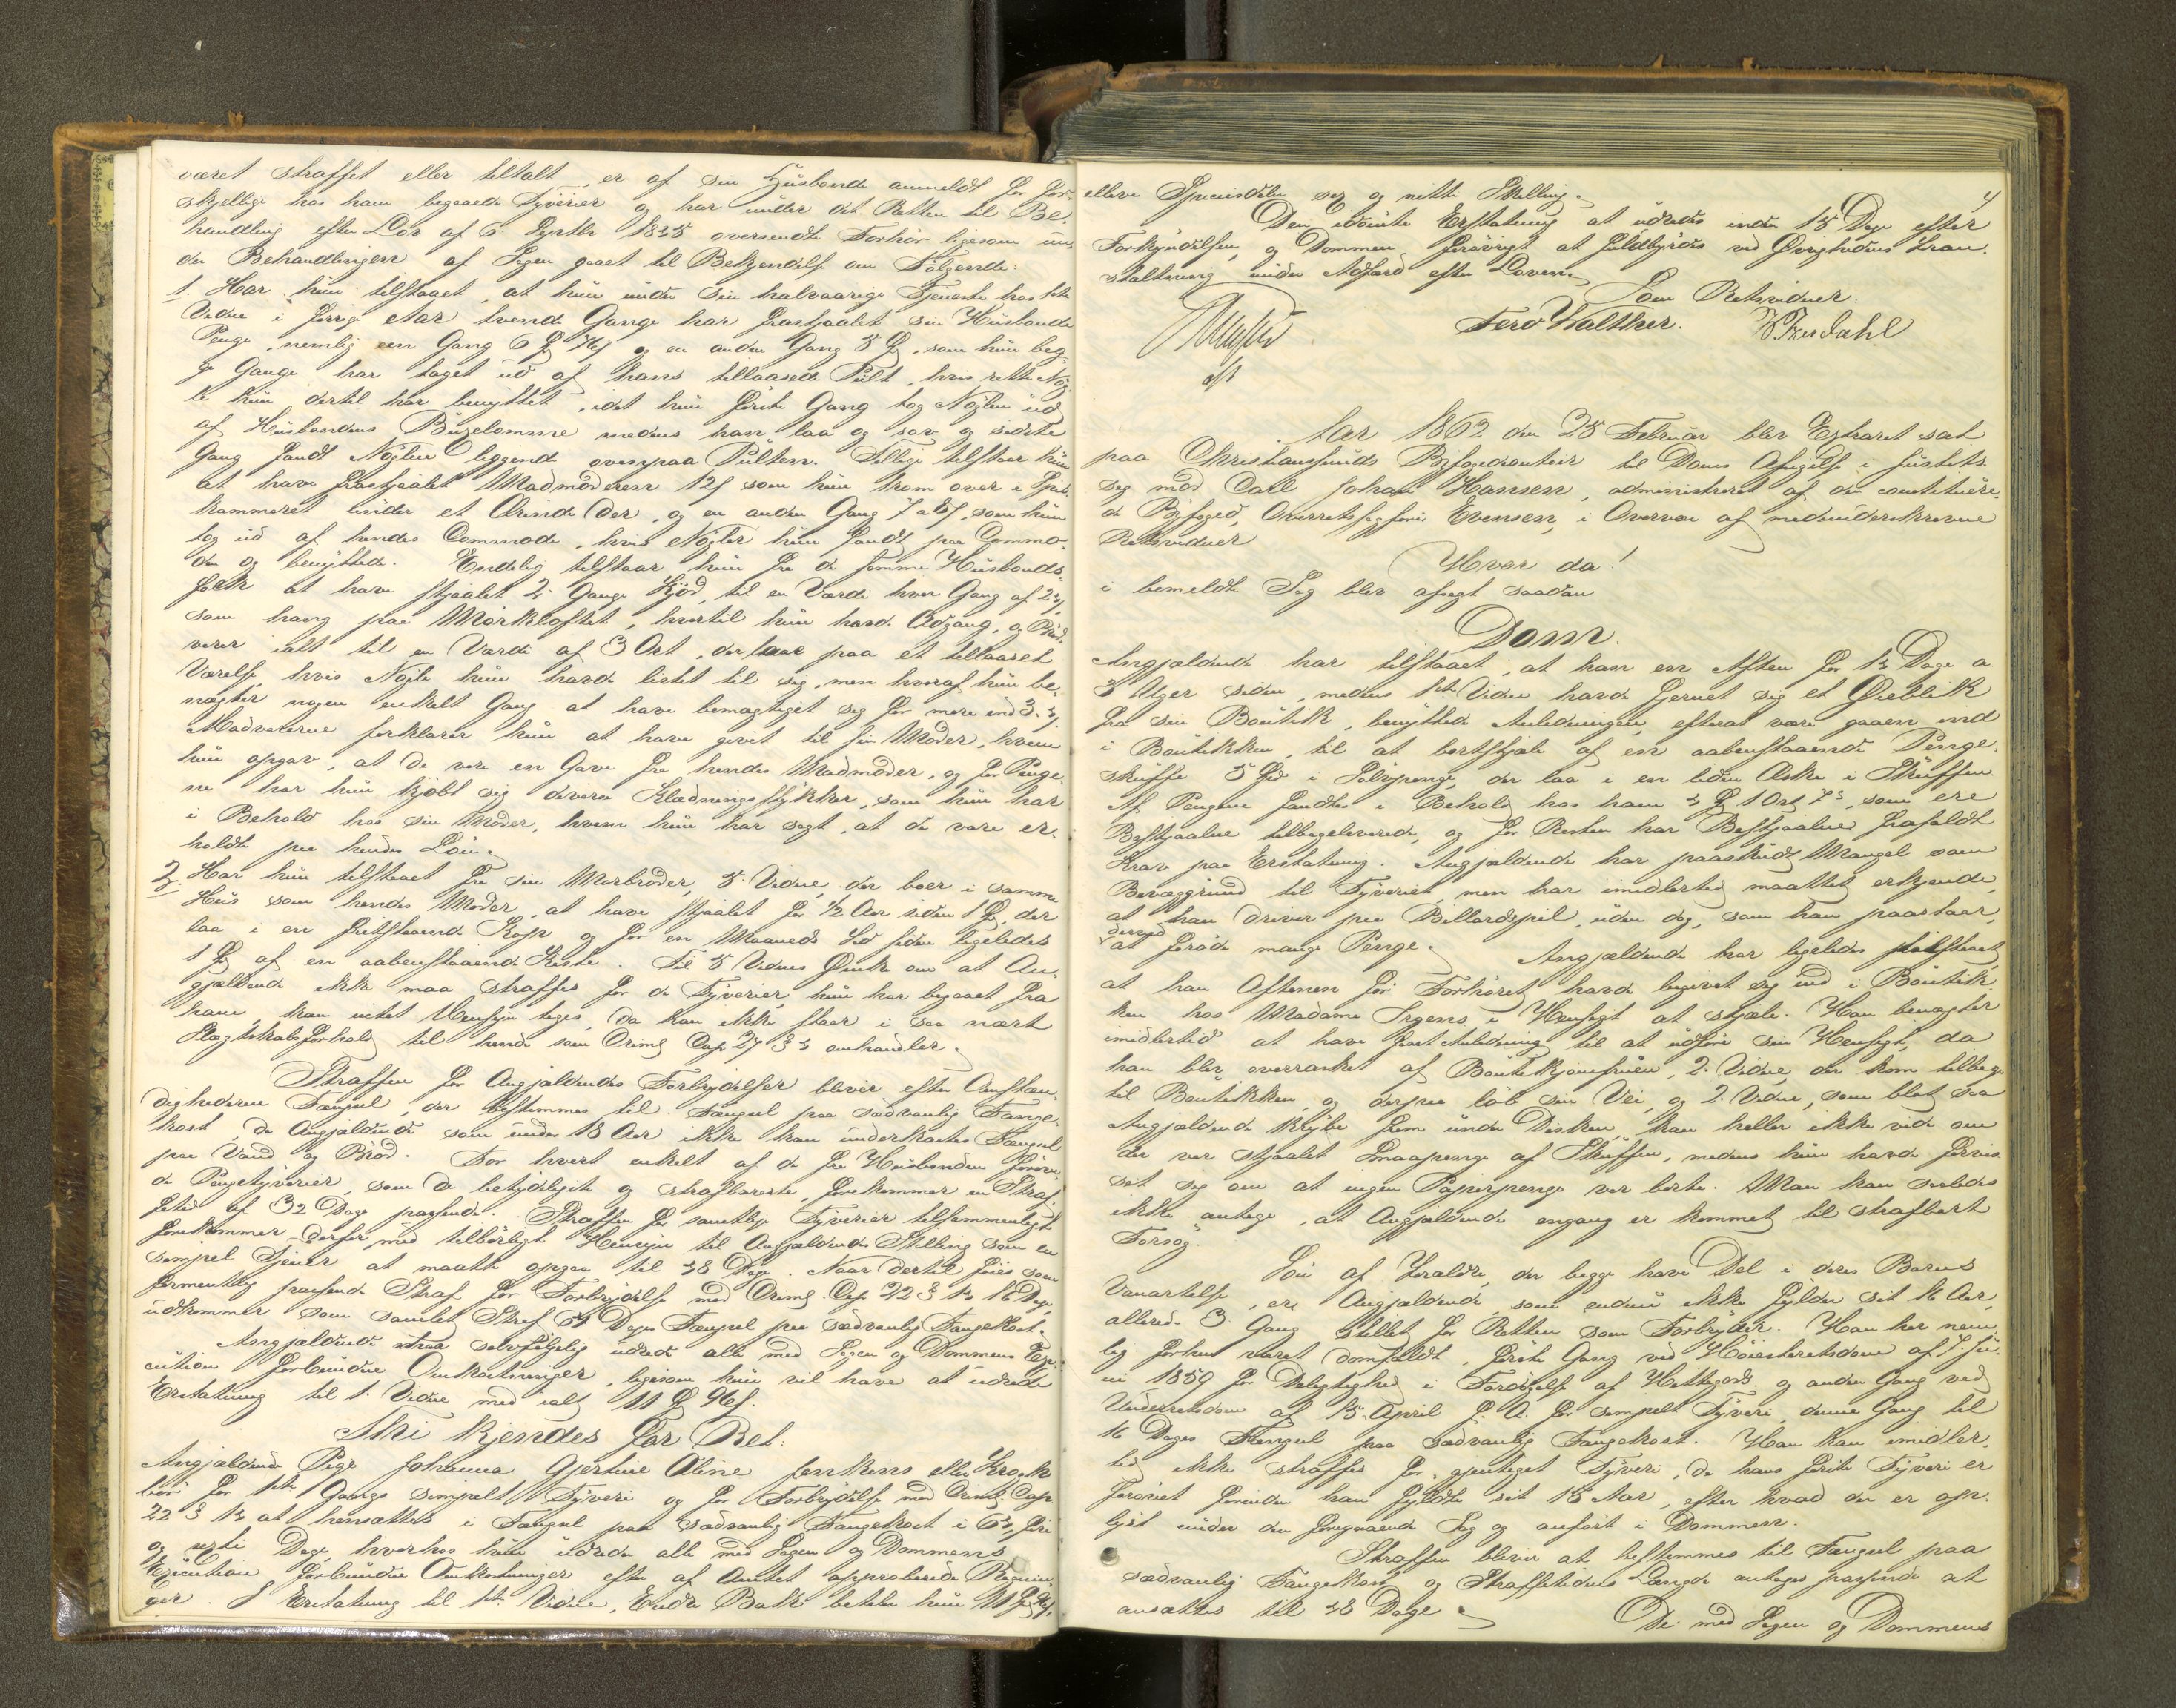 været straffet eller tiltalt, er af sin Husbonde anmeldt for for-
skjellige hos ham begaaede Tyverier og har under det Retten til Be-
handling efter Lov af 6 Septbr 1845 oversendte Forhør ligesom un-
der Behandlingen af Sagen gaaet til Bekjendelse om Følgende:
1. Har hun tilstaaet, at hun under sin halvaarige Tjeneste hos 1ste
Vidne i forrige Aar tvende Gange har frastjaalet sin Husbonde
Penge, nemlig en Gang 6 og en anden Gang 5, som hun beg-
ge Gange har taget ud af hans tillaasede Pult, hvis rette Nøg-
le hun dertil har benyttet, idet hun første Gang tog Nøglen ud
af Husbondens Buxelomme medens han laa og sov og sidste
Gang fandt Nøglen liggende ovenpaa Pulten. Tillige tilstaar hun
at have frastjaalet Madmoderen 12 s som hun kom over i Spis-
kammeret under et Ærende der, og en anden Gang 7 a 8 s, som hun
tog ud af hendes Commode, hvis Nøgler hun fandt paa Commo-
den og benyttede. Endelig tilstaar hun fra de samme Husbonds-
folk at have stjaalet 2 Gange Kjød, til en Værdi hver Gang af 24 s,
som hang paa Mørkloftet, hvortil hun havde Adgang, og Brød-
varer ialt til en Værdi af 3 Ort, der laae paa et tillaaset
Værelse, hvis Nøgle hun havde listet til sig, men hvoraf hun be-
nægter nogen enkelt Gang at have bemægtiget sig for mere end
Madvarerne forklarer hun at have givet til sin Moder, hvem
hun opgav, at de vare en Gave fra hendes Madmoder, og for Penge-
ne har hun kjøbt sig diverse Klædningsstykker, som hun har
i Behold hos sin Moder, hvem hun har sagt, at de vare er-
holdte paa hendes Løn.
2. Har hun tilstaaet fra sin Morbroder, 5. Vidne, der boer i samme
Huus som hendes Moder, at have stjaalet for ½ Aar siden 1, der
laa i en fritstaaende Kop og for en Maaneds Tid siden ligeledes
1 af en aabenstaaende Kiste. Til 5 Vidnes Ønske om at An-
gjældende ikke maa straffes for de Tyverier, hun har begaaet fra
ham, kan intet Hensyn tages, da han ikke staar i saa nært
Slægtskabsforhold til hende som Criml Cap 27 § omhandler.
Straffen for Angjældendes Forbrydelser bliver efter Omstæn-
dighederne Fængsel, der bestemmes til Fængsel paa sædvanlig Fange-
kost, da Angjældende som under 18 Aar ikke kan underkastes Fængsel
paa Vand og Brød. For hvert enkelt af de fra Husbonden forøve-
de Pengetyverier, som de betydeligste og strafbareste, forekommer en Straf-
fetid af 32 Dage passende. Straffen for samtlige Tyverier tilsammenlagt
forekommer derfor med tilbørligt Hensyn til Angjældendes Stilling som en
simpel Tjener at maatte opgaa til 48 Dage. Naar dertil føies som
formentlig passende Straf for Forbrydelse mod Criml Cap 22 § 14 16 Dage
udkommer som samlet Straf 64 Dages Fængsel paa sædvanlig Fangekost.
Angjældende maa selvfølgelig udrede alle med Sagen og Dommens Exe-
cution forbundne Omkostninger, ligesom hun vil have at udrede
Erstatning til 1. Vidne med ialt 11
Thi kjendes for Ret:
Angjældende Pige Johanna Gjertine Oline Jenkins eller Krogh
bør for 1ste Gangs simpelt Tyveri og for Forbrydelse mod Criml Cap
22 § 14 at hensættes i Fængsel paa sædvanlig Fangekost i 64, fire
og sexti Dage, hvorhos hun udreder alle med Sagen og Dommens
Execution forbundne Omkostninger efter af Amtet approberede Regnin-
ger. I Erstatning til 1ste Vidne, Endre Bakk betaler hun 11
4
elleve Speciedaler sex og nitti Skilling.
Den idømte Erstatning at udredes inden 15 Dage efter
Forkyndelsen, og Dommen forøvrigt at fuldbyrdes ved Øvrighedens Foran-
staltning under Adfærd efter Loven.
Som Retsvidner:
Ferd Walther.
Aar 1862 den 25 Februar blev Extraret sat
paa Christianssunds Byfogedcontoir til Doms Afsigelse i Justits-
sag mod Carl Johan Hansen, administreret af den constituere-
de Byfoged, Overretssagfører Evensen, i Overvær af medunderskrevne
Retsvidner
Hvor da!
i bemeldte Sag blev afsagt saadan
Dom.
Angjældende har tilstaaet, at han en Aften for 14 Dage a
3 Uger siden, medens 1ste Vidne havde fjernet sig et Øieblik
fra sin Boutik, benyttede Anledningen, efterat være gaaen ind
i Boutikken, til at bortstjæle af en aabenstaaende Penge-
skuffe 5 Spd i Sølvpenge, der laa i en liden Æske i Skuffen.
Af Pengene fandtes i Behold hos ham 4 1 Ort 7 s, som ere
Bestjaalne tilbageleverede, og for Resten har Bestjaalne frafaldt
Krav paa Erstatning. Angjældende har paaskudt Mangel som
Bevæggrund til Tyveriet, men har imidlertid maattet erkjende,
at han driver paa Billardspil, uden dog, som han paastaar,
derved
at forøde mange Penge. Angjældende har ligeledes tilstaaet
at han Aftenen før Forhøret havde begivet sig ind i Boutik-
ken hos Madame Irgens i Hensigt at stjæle. Han benægter
imidlertid at have faaet Anledning til at udføre sin Hensigt, da
han blev overrasket af Boutikjomfruen, 2. Vidne, der kom tilbage
til Boutikken, og derpaa løb sin Vei, og 2. Vidne, som blot saa
Angjældende krybe frem under Disken, kan heller ikke vide om
der var stjaalet Smaapenge af Skuffen, medens hun havde forvis-
set sig om at ingen Papirpenge var borte. Man kan saaledes
ikke antage, at Angjældende engang er kommet til strafbart
Forsøg.
Søn af Forældre, der begge have Del i deres Barns
Vanartelse, er Angjældende, som endnu ikke fylder sit 16 Aar,
allerede 3 Gang stillet for Retten som Forbryder. Han har nem-
lig forhen været domfældt, første Gang ved Høiesteretsdom af 7 Ju-
ni 1859 for Delagtighed i Fordølgelse af Hittegods og anden Gang ved
Underretsdom af 15. April f. A. for simpelt Tyveri, denne Gang til
16 Dages Fængsel paa sædvanlig Fangekost. Han kan imidler-
tid ikke straffes for gjentaget Tyveri, da hans første Tyveri er
forøvet forinden han fyldte sit 15 Aar, efter hvad der er op-
lyst under den foregaaende Sag og anført i Dommen.
Straffen bliver at bestemmes til Fængsel paa
sædvanlig Fangekost og Straffetidens Længde antages passende at
ansættes til 48 Dage.
De med Sagen og Dommens